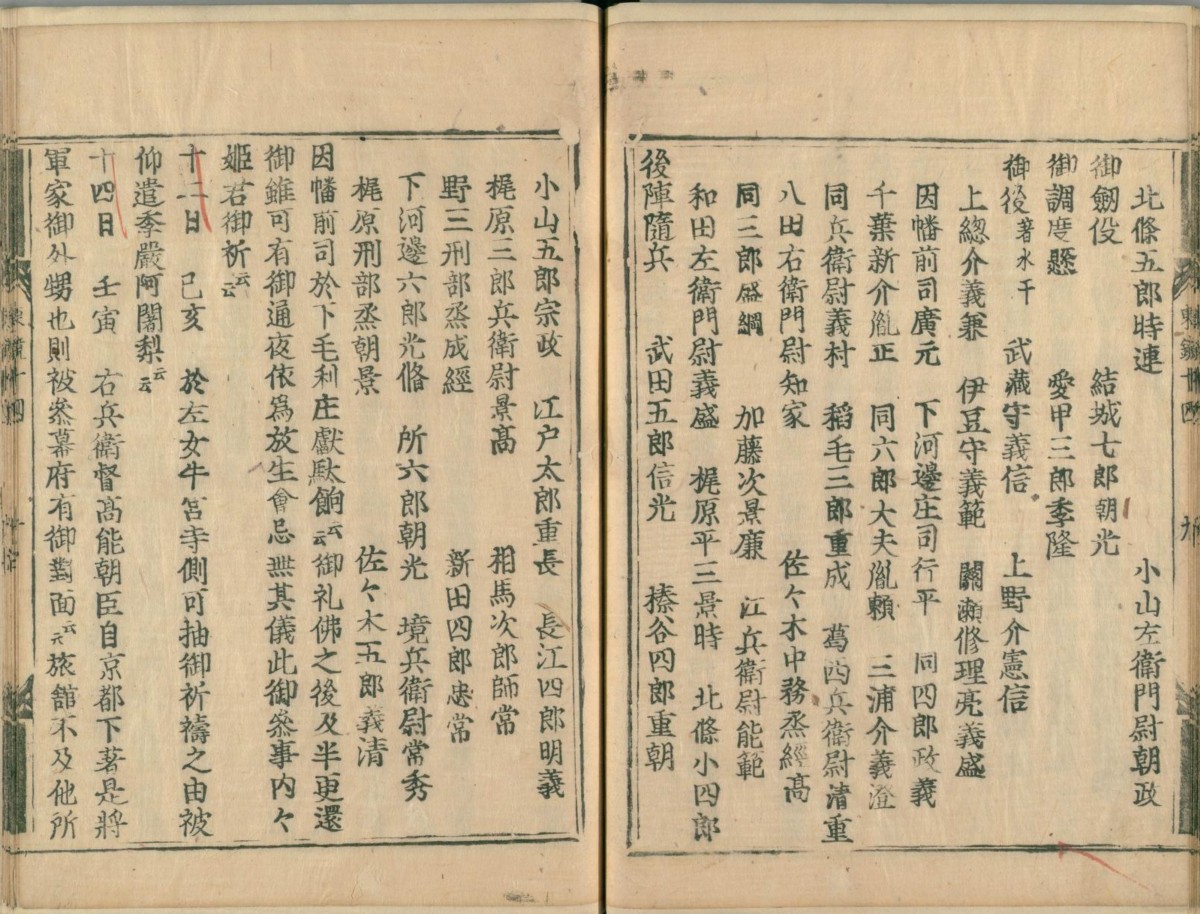 北條五郎時連　　小山左衛門尉朝政
御劔役　　結城七郎朝光
御調度懸　　愛甲三郎季隆
御後着水干　武藏守義信　上野介憲信
上總介義兼　伊豆守義範　關瀬修理亮義盛
因幡前司廣元　下河邊庄司行平　同四郎政義
千葉新介胤正　同六郎大夫胤賴　三浦介義澄
同兵衛尉義村　稻毛三郎重成　葛西兵衛尉清重
八田右衛門尉知家　佐々木中務丞經髙
同三郎盛綱　加藤次景廉　江兵衛尉能範
和田左衛門尉義盛　梶原平三景時　北條小四郎
後陣隨兵　武田五郎信光　榛谷四郎重朝
小山五郎宗政　江戸太郎重長　長江四郎明義
梶原三郎兵衛尉景髙　相馬次郎師常
野三刑部丞成經　新田四郎忠常
下河邊六郎光脩　所六郎朝光　境兵衛尉常秀
梶原刑部丞朝景　佐々木五郎義清
因幡前司於下毛利庄獻駄餉云云御礼佛之後及半更還
御雖可有御通夜依爲放生會忌無其儀此御叅事内々
姫君御祈云云
十二日　己亥　於左女牛宮寺側可抽御祈禱之由被
仰遣季嚴阿闍梨云云
十四日　壬寅　右兵衛督髙能朝臣自京都下著是將
軍家御外甥也則被叅幕府有御對面云云旅館不及他所